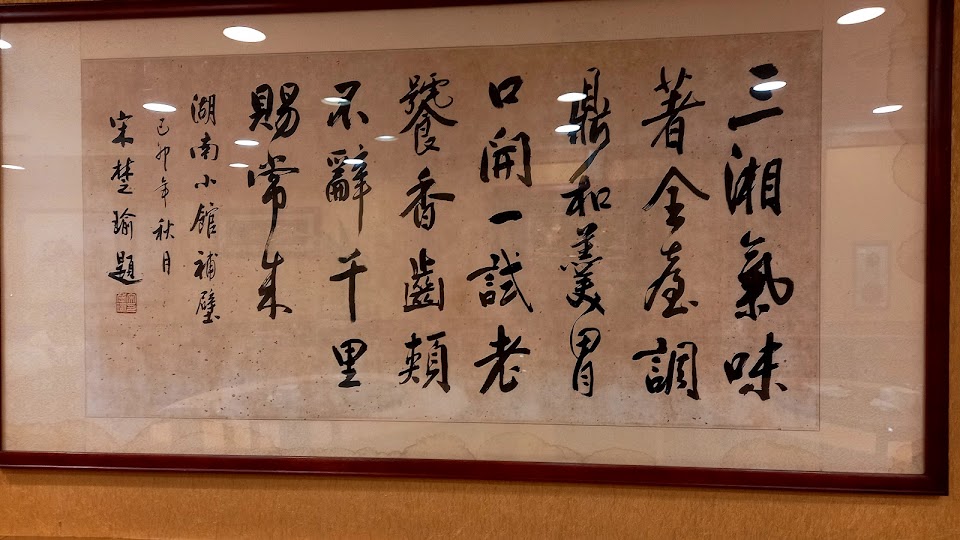 三湘氣味
著全臺調
鼎和羹胃
口開一試老
饕香齒頰
不辭千里
賜常來
湖南小館補壁
己卯年秋月
宋楚瑜題